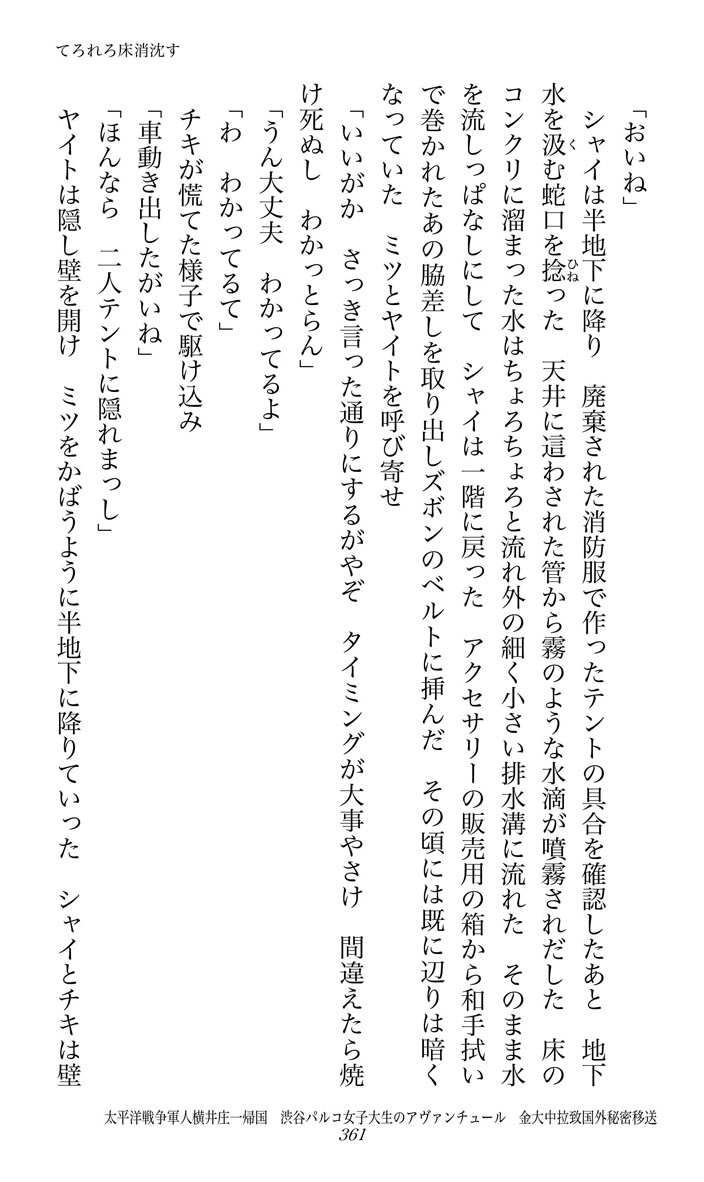 てろれろ床消沈す
「おいね」
　シャイは半地下に降り　廃棄された消防服で作ったテントの具合を確認したあと　地下
水を汲む蛇口を捻った　天井に這わされた管から霧のような水滴が噴霧されだした　床の
コンクリに溜まった水はちょろちょろと流れ外の細く小さい排水溝に流れた　そのまま水
を流しっぱなしにして　シャイは一階に戻った　アクセサリーの販売用の箱から和手拭い
で巻かれたあの脇差しを取り出しズボンのベルトに挿んだ　その頃には既に辺りは暗く
なっていた　ミツとヤイトを呼び寄せ
「いいがか　さっき言った通りにするがやぞ　タイミングが大事やさけ　間違えたら焼
け死ぬし　わかっとらん」
「うん大丈夫　わかってるよ」
「わ　わかってるて」
　チキが慌てた様子で駆け込み
「車動き出したがいね」
「ほんなら　二人テントに隠れまっし」
　ヤイトは隠し壁を開け　ミツをかばうように半地下に降りていった　シャイとチキは壁
太平洋戦争軍人横井庄一帰国　渋谷パルコ女子大生のアヴァンチュール　金大中拉致国外秘密移送
361